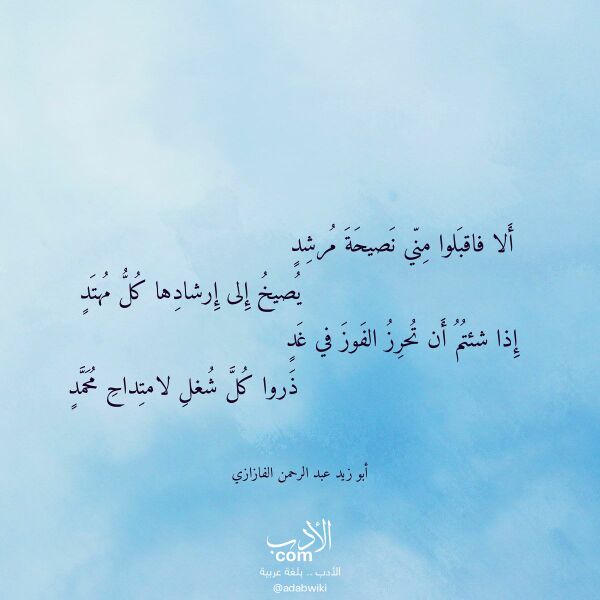 أَلا فاقبَلوا مِنّي نَصيحَةَ مُرشِدٍ
يُصيخُ إِلى إِرشادِها كُلُّ مُهتَدٍ
إِذا شئتُمُ أَن تُحرِزُ الفَوزَ في غَدٍ
ذَروا كُلَّ شُغلِ لامتِداحِ مُحَمَّدٍ
أبو زيد عبد الرحمن الفازازي
الأدب
com
الأدب .. بلغة عربية
@adabwiki